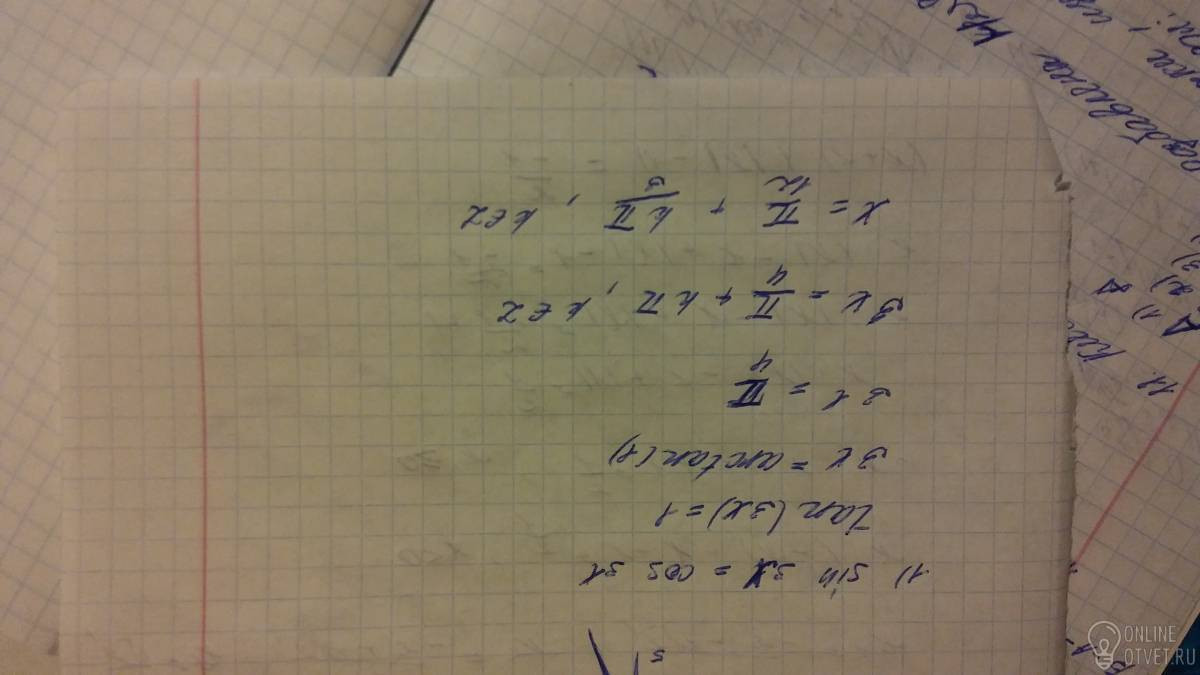 1) sin 3x = cos 3x
tan(3x) = 1
3x = arctan(1)
3x = π/4
3x = π/4 + kπ, k∈z
x = π/12 + kπ/3, k∈z
5
11.
1)
2)
3)
ONLINE
OTVET.RU